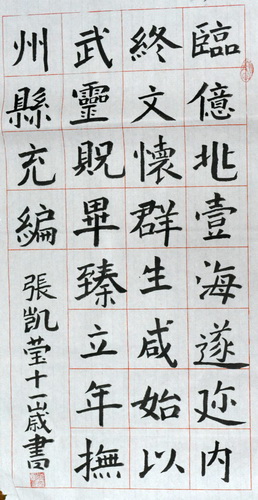 臨億兆壹海遂迩内
終文懷群生咸始以
武靈貺畢臻立年撫
州縣充編
張凱莹十一歲書